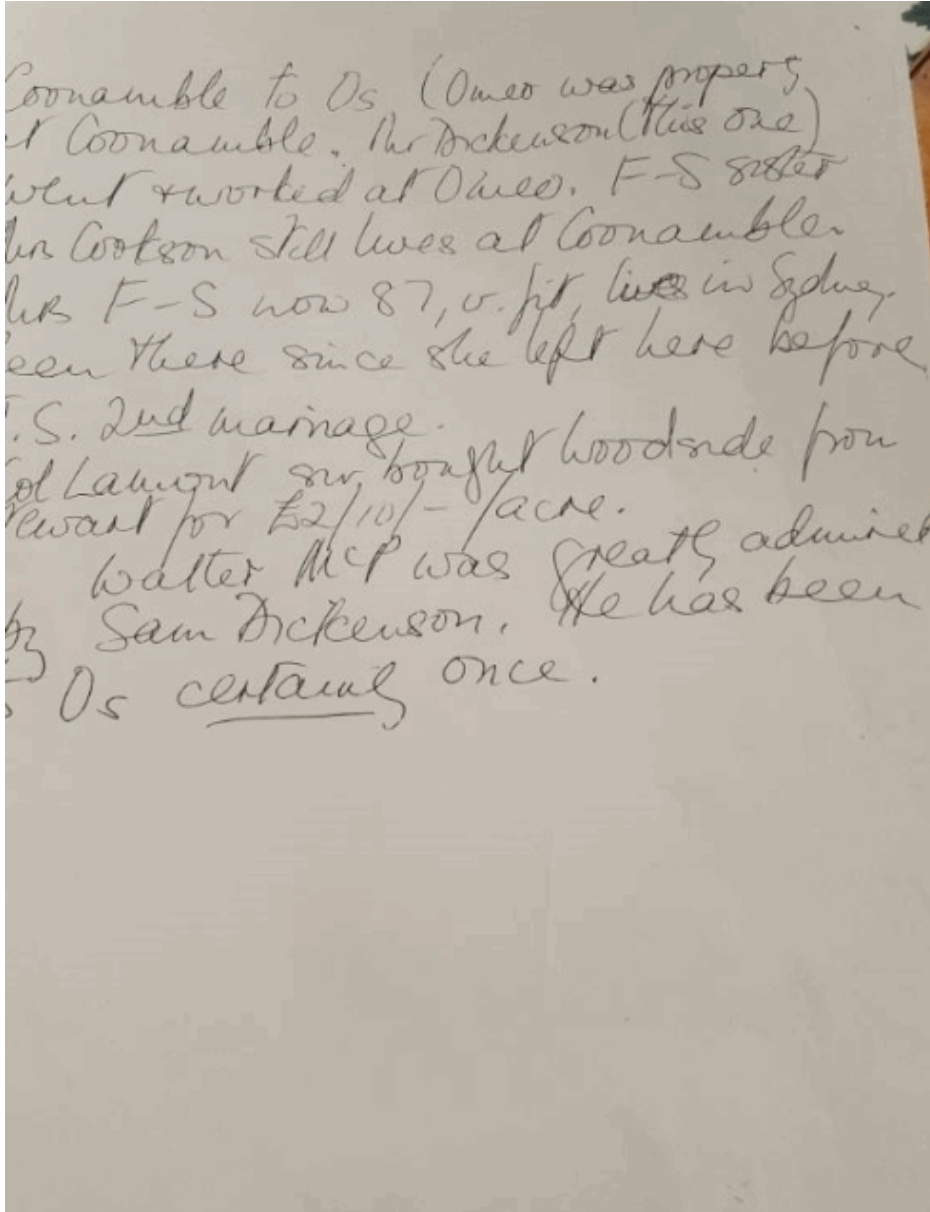 Coonamble to Os (Omeo was property
at Coonamble. Mr Dickenson (this one)
went & worked at Omeo. F-S sister
Mrs Cookson still lives at Coonamble.
Mrs F-S now 87, v. fit, lives in Sydney.
een there since she left here before
.S. 2nd marriage.
Col Lamont snr. bought Woodside from
ewart for £2/10/- /acre.
Walter McP was greatly admired
by Sam Dickenson. He has been
Os certainly once.